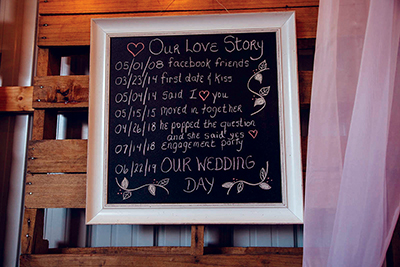 ♡ Our Love Story
05/01/08 facebook friends
03/23/14 first date & kiss
05/04/14 said I ♡ you
05/15/15 moved in together
04/26/18 he popped the question
and she said yes ♡
07/14/18 Engagement party
06/22/19 OUR WEDDING
DAY